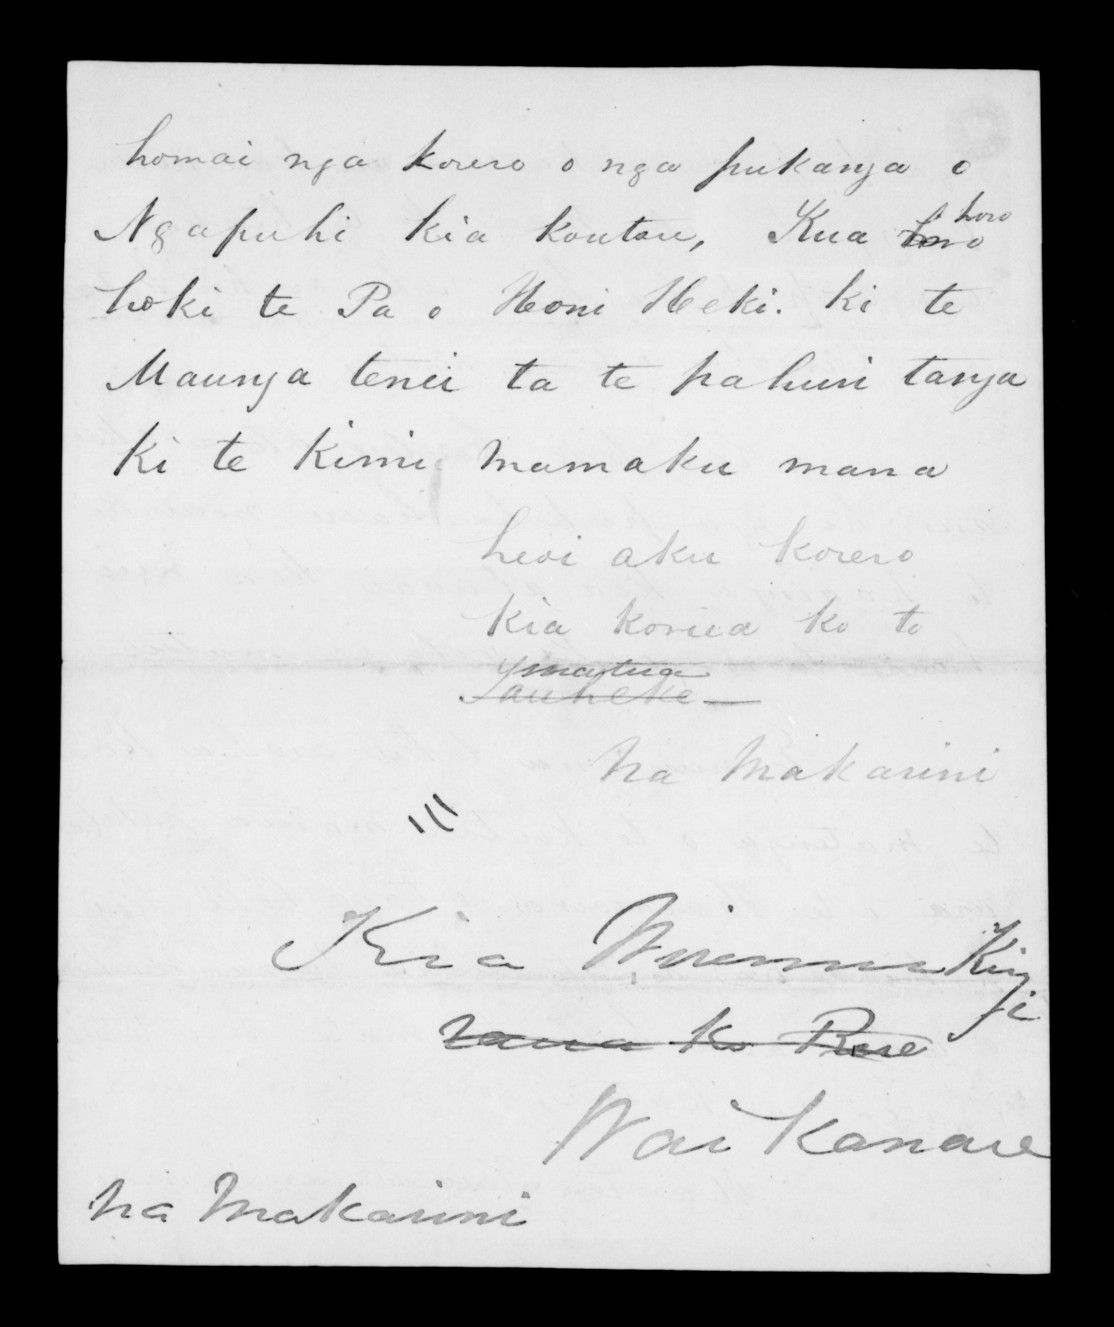 homai nga korero o nga pukanga o
Ngapuhi kia koutou, Kua horo
hoki te Pa o Honi Heki. ki te
Maunga tenei ta te pahuri tanga
ki te kimi mamaku mana
heoi aku korero
kia korua ko to
matua
na Makarini
Kia Wiremu Kingi
raua ko Pere
Wai Kanae
na Makarini